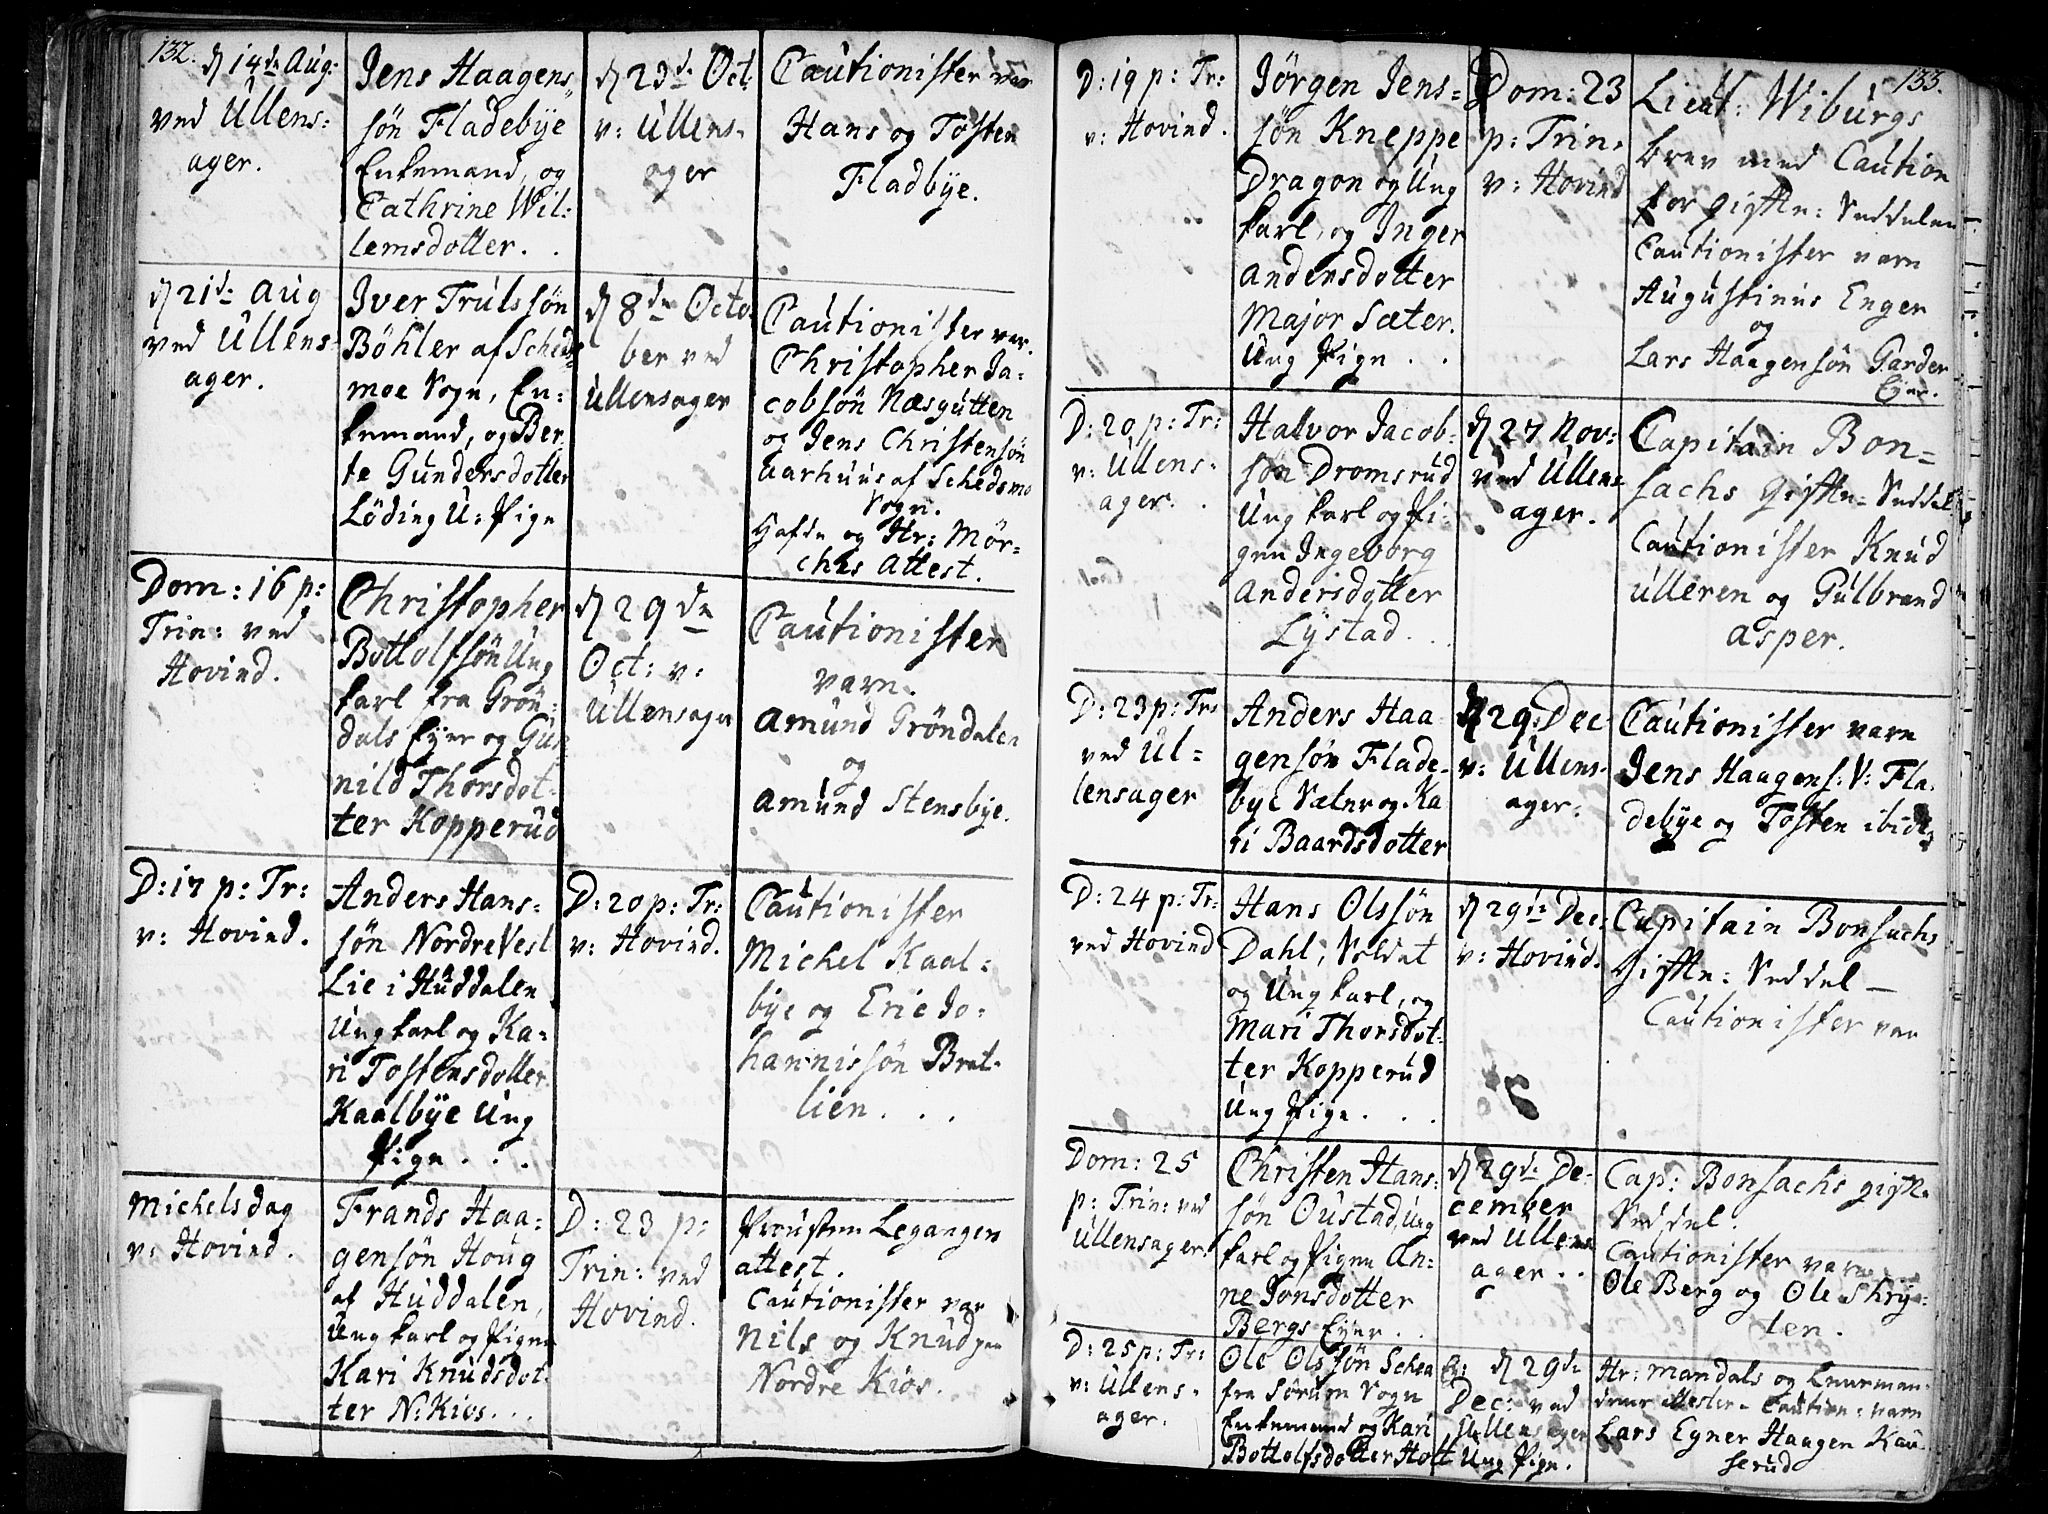 132.
d 14de Aug:
ved Ullens:
ager.
Jens Haagens
søn Fladebye
Enkemand, og
Cathrine Wil:
lemsdotter.
d 23de Oct:
v: Ullens-
ager
Cautionister var
Hans og Tosten
Fladbye.
d 21de Aug
ved Ullens-
ager.
Iver Trulssøn
Böhler af Scheds
moe Sogn, En:
kemand, og Ber
te Gundersdotter
Löding U: Pige
d 8de Octo
ber ved
Ullensager
Cautionister var.
Christopher Ja:
cobsön Næsgutten
og Jens Christensön
Aarhuus af Schedsmo
Sogn.
Hafde og Hr: Mör=
chs Attest.
Dom: 16 p:
Trin: ved
Hovind.
Christopher
Bottolfsön Ung
karl fra Grön:
dals Eyer og Gu
nild Thorsdot-
ter Kopperud
d 29de
Oct: v:
Ullensager
Cautionister
vare.
Amund Gröndalen
og
Amund Stensbye.
D: 17 p: Tr:
v: Hovind.
Anders Hans=
søn Nordre Vesl
Lie i Huddalen
Ung karl og Ka=
ri Tostensdotter
Kaalbye Ung
Pige . . .
D: 20 p: Tr:
v: Hovind.
Cautionister
Michel Kaal=
bye og Eric Jo=
hannissön Brat-
lien . . .
Michelsdag
v: Hovind.
Frands Haa=
gensön Houg
af Huddalen,
Ung karl og Pigen
Kari Knudsdot-
ter N: Kios . . .
D: 23 p:
Trin: ved
Hovind.
Provsten Legangers
attest.
Cautionister var
Nils og Knud paa
Nordre Kios.
133.
D: 19 p: Tr:
v: Hovind.
Jørgen Jens=
søn Kneppe
Dragon og Ung
karl, og Inger
Andersdotter
Major Sæter.
Ung Pige . .
Dom: 23
p: Trin.
v: Hovind
Lieut: Wiburgs
brev med Caution
for gifte: Seddelen
Cautionister vare
Augustinus Enger
og
Lars Haagensön Garder
Eyer.
D: 20 p: Tr:
v: Ullens-
ager.
Halvor Jacob-
søn Dromsrud
Ung karl og Pi-
gen Ingeborg
Andersdotter
Lystad . .
d 27 Nov:
ved Ullens
ager.
Capitain Bon=
sachs Gifte= Seddel
Cautionister Knud
Ulleren og Gulbrand
Asper.
D: 23 p: Tr:
ved Ul=
lensager
Anders Haa
gensön Flade-
bye Sætre og Ka
ri Baardsdotter
d 29: Dec
v: Ullens-
ager:
Cautionister vare
Jens Haagens: V: Fla.
debye og Tosten ibid:
D: 24 p: Tr:
ved Hovind
Hans Olssön
Dahl, Soldat
og Ung karl, og
Mari Thorsdot-
ter Kopperud
Ung Pige . . .
d 29de Dec:
v: Hovind.
Capitain Bonsachs
Gifte: Seddel —
Cautionister var
Dom: 25
p: Trin: ved
Ullensager.
Christen Hans=
søn Oustad, Ung
karl og Pigen An=
ne Jonsdotter
Bergs Eyer . .
d 29de De-
cember
ved Ullens
ager . .
Cap: Bonsachs gifte
Seddel.
Cautionister vare
Ole Berg og Ole Skry:
ten.
D: 25 p: Tr:
v: Ullens-
ager.
Ole Olssön
fra Sörum Sogn
Enkemand og Kari
Bottolfsdotter Holt
d 29de
Dec: ved
Ullensager
Ung Pige.
Hr: Mandals og
Caution: vare
Lars Eyner Haagen Kau-
serud